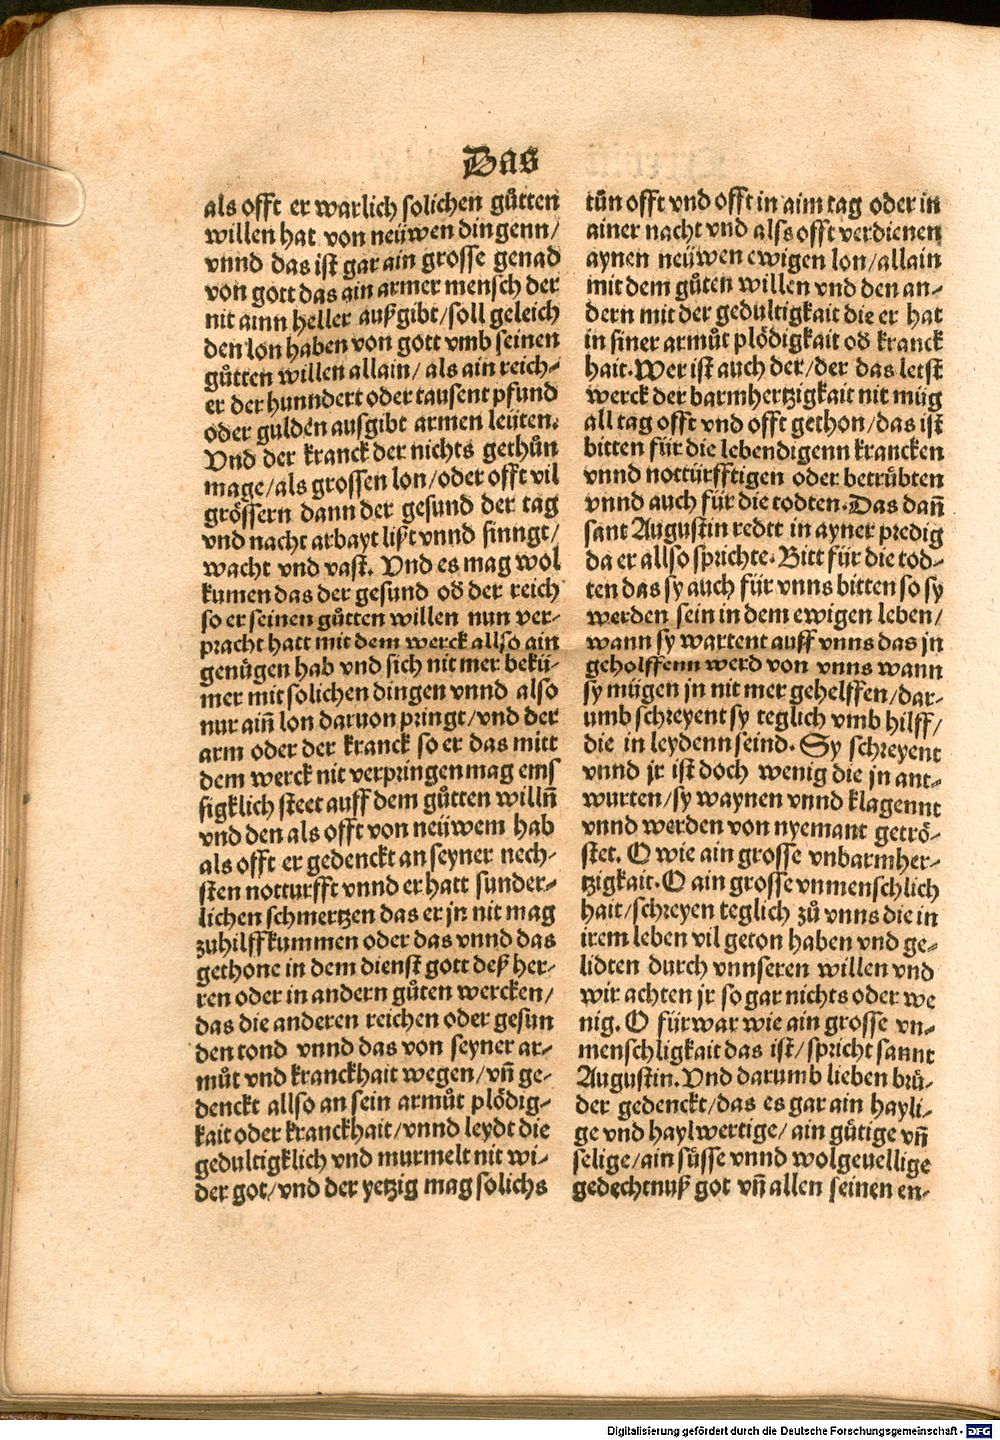 Das
als offt er warlich solichen gůtten
willen hat von neüwen dingenn/
vnnd das ist gar ain grosse genad
von gott das ain armer mensch der
nit ainn heller außgibt/soll geleich
den lon haben von gott vmb seinen
gůtten willen allain/als ain reich-
er der hunndert oder tausent pfund
oder gulden ausgibt armen leüten.
Vnd der kranck der nichts gethůn
mage/als grossen lon/oder offt vil
grössern dann der gesund der tag
vnd nacht arbayt lißt vnnd sinngt/
wacht vnd vast. Vnd es mag wol
kumen das der gesund oď der reich
so er seinen gůtten willen nun ver-
pracht hatt mit dem werck allso ain
genügen hab vnd sich nit mer bekü-
mer mit solichen dingen vnnd also
nur aiñ lon daruon pringt/vnd der
arm oder der kranck so er das mitt
dem werck nit verpringen mag ems
sigklich steet auff dem gůtten willñ
vnd den als offt von neüwem hab
als offt er gedenckt an seyner nech-
sten notturfft vnnd er hatt sunder-
lichen schmertzen das er jn nit mag
zuhilffkummen oder das vnnd das
gethone in dem dienst gott deß her-
ren oder in andern gůten wercken/
das die anderen reichen oder gesun
den tond vnnd das von seyner ar-
můt vnd kranckhait wegen/vñ ge-
denckt allso an sein armůt plödig-
kait oder kranckhait/vnnd leydt die
gedultigklich vnd murmelt nit wi-
der got/vnd der yetzig mag solichs
tůn offt vnd offt in aim tag oder in
ainer nacht vnd alss offt verdienen
aynen neüwen ewigen lon/allain
mit dem gůten willen vnd den an-
dern mit der gedultigkait die er hat
in siner armůt plödigkait oď kranck
hait. Wer ist auch der/der das letst
werck der barmhertzigkait nit müg
all tag offt vnd offt gethon/das ist
bitten für die lebendigenn krancken
vnnd nottürfftigen oder betrůbten
vnnd auch für die todten. Das dañ
sant Augustin redtt in ayner predig
da er allso sprichte. Bitt für die tod-
ten das sy auch für vnns bitten so sy
werden sein in dem ewigen leben/
wann sy wartent auff vnns das jn
geholffenn werd von vnns wann
sy mügen jn nit mer gehelffen/dar-
umb schreyent sy teglich vmb hilff/
die in leydenn seind. Sy schreyent
vnnd jr ist doch wenig die jn ant-
wurten/sy waynen vnnd klagennt
vnnd werden von nyemant getrö-
stet. O wie ain grosse vnbarmher-
tzigkait. O ain grosse vnmenschlich
hait/schreyen teglich zů vnns die in
irem leben vil geton haben vnd ge-
lidten durch vnnseren willen vnd
wir achten jr so gar nichts oder we
nig. O fürwar wie ain grosse vn-
menschligkait das ist/spricht sannt
Augustin. Vnd darumb lieben brů-
der gedenckt/das es gar ain hayli-
ge vnd haylwertige/ain gůtige vñ
selige/ain sůsse vnnd wolgeuellige
gedechtnuß got vñ allen seinen en-
Digitalisierung gefördert durch die Deutsche Forschungsgemeinschaft - DFG